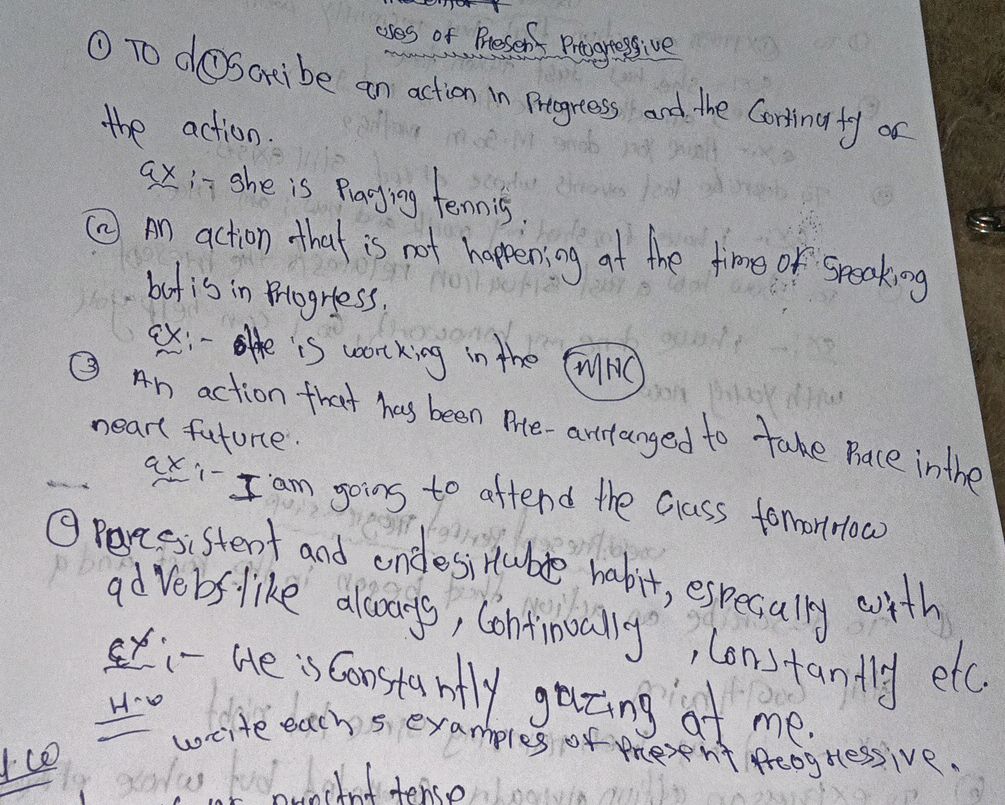 uses of Present Progressive
① To describe an action in Progress and the Continuty of
the action.
ex :- She is Playing tennis.
② An action that is not happening at the time of Speaking
but is in Progress.
Ex :- She is working in the MNC
③ An action that has been Pre-arranged to take Place in the
near future.
ex :- I am going to attend the Class tomorrow
④ Persistent and undesirable habit, especially with
adverbs like always, Continually, Constantly etc.
Ex :- He is Constantly gazing at me.
H.W
write each 5 examples of Present Progressive.
tense